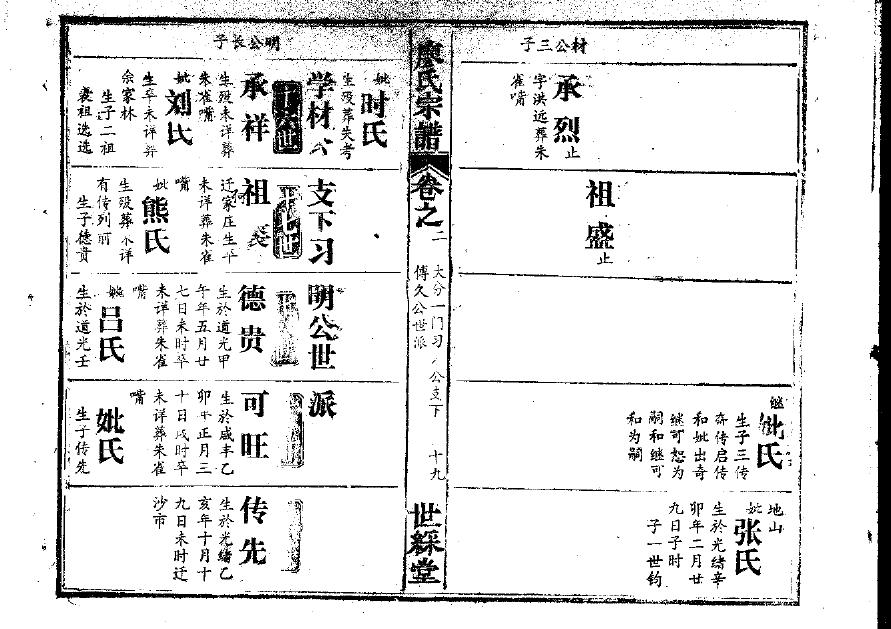 材公三子
承烈止
字洪远葬朱
雀嘴
祖盛止
继妣氏
生子三传
奇传启传
和妣出奇
继可恕为
嗣和继可
和为嗣
地山
妣张氏
生於光绪辛
卯年二月廿
九日子时
子一世钧
廖氏宗譜
卷之二
大分一门习公支下
傅久公世派
十九
世綵堂
明公长子
妣时氏
生殁葬失考
学材公支下习明公世派
承祥
生殁未详葬
朱雀嘴
妣刘氏
生卒未详葬
佘家林
生子二祖
祖选
祖
迁家庄生卒
未详葬朱雀
嘴
妣熊氏
生殁葬不详
有传列前
生子德贵
德贵
生於道光甲
午年五月廿
七日未时卒
未详葬朱雀
嘴
妣吕氏
生於道光壬
可旺
生於咸丰乙
卯年正月三
十日戌时卒
未详葬朱雀
嘴
妣氏
生子传先
传先
生於光绪乙
亥年十月十
九日未时迁
沙市